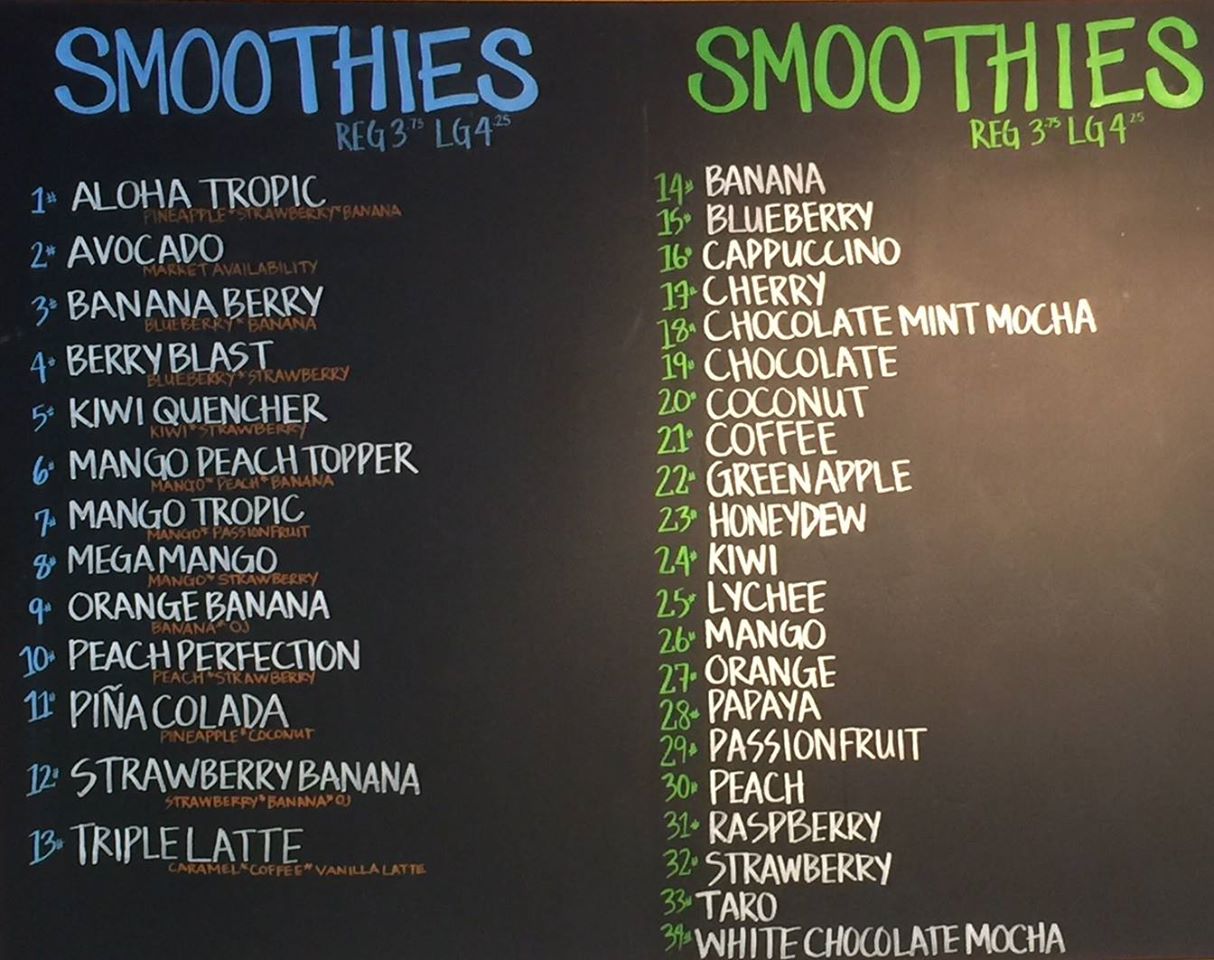 SMOOTHIES
REG 3.75 LG 4.25
1# ALOHA TROPIC
PINEAPPLE*STRAWBERRY*BANANA
2# AVOCADO
MARKET AVAILABILITY
3# BANANA BERRY
BLUEBERRY*BANANA
4# BERRY BLAST
BLUEBERRY*STRAWBERRY
5# KIWI QUENCHER
KIWI*STRAWBERRY
6# MANGO PEACH TOPPER
MANGO*PEACH*BANANA
7# MANGO TROPIC
MANGO*PASSIONFRUIT
8# MEGA MANGO
MANGO*STRAWBERRY
9# ORANGE BANANA
BANANA*OJ
10# PEACH PERFECTION
PEACH*STRAWBERRY
11# PIÑA COLADA
PINEAPPLE*COCONUT
12# STRAWBERRY BANANA
STRAWBERRY*BANANA*OJ
13# TRIPLE LATTE
CARAMEL*COFFEE*VANILLA LATTE
SMOOTHIES
REG 3.75 LG 4.25
14# BANANA
15# BLUEBERRY
16# CAPPUCCINO
17# CHERRY
18# CHOCOLATE MINT MOCHA
19# CHOCOLATE
20# COCONUT
21# COFFEE
22# GREEN APPLE
23# HONEYDEW
24# KIWI
25# LYCHEE
26# MANGO
27# ORANGE
28# PAPAYA
29# PASSIONFRUIT
30# PEACH
31# RASPBERRY
32# STRAWBERRY
33# TARO
34# WHITE CHOCOLATE MOCHA